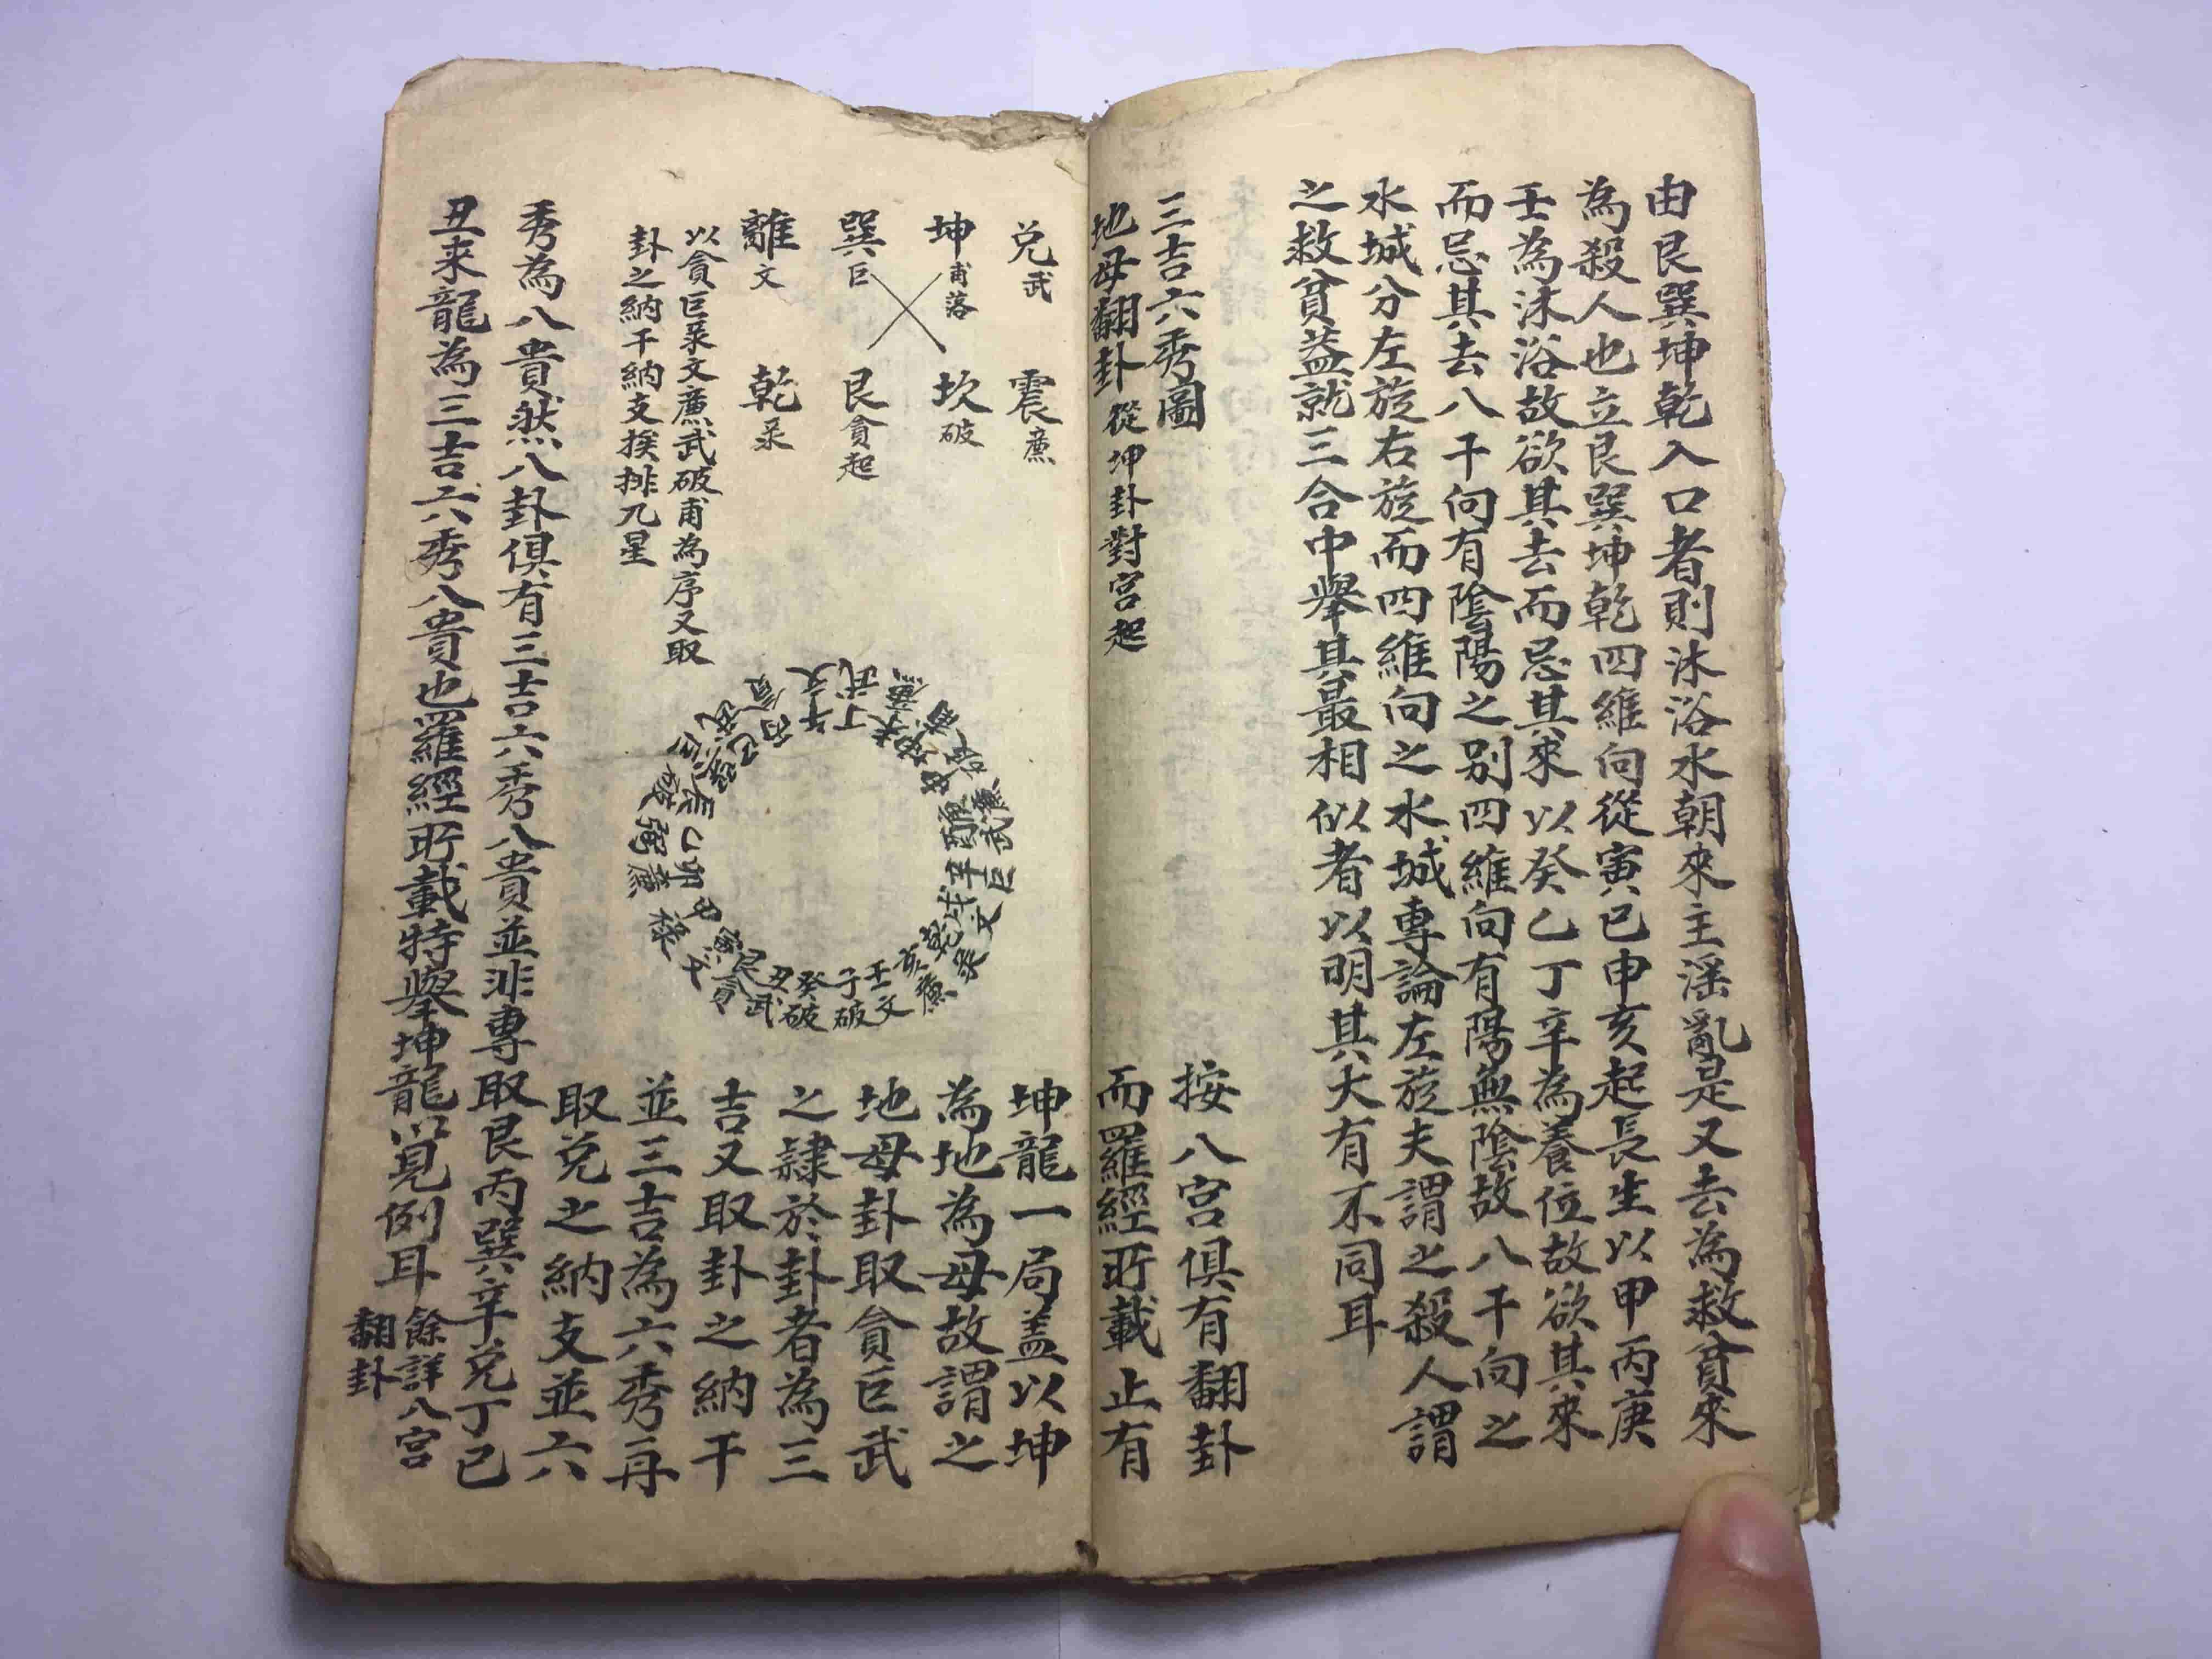 由艮巽坤乾入口者則沐浴水朝來主淫亂是又去為救貧來
為殺人也立艮巽坤乾四維向從寅巳申亥起長生以甲丙庚
壬為沐浴故欲其去而忌其來以癸乙丁辛為養位故欲其來
而忌其去八干向有陰陽之别四維向有陽無陰故八干向之
水城分左旋右旋而四維向之水城專論左旋夫謂之殺人謂
之救貧葢就三合中舉其最相似者以明其大有不同耳
三吉六秀圖
地母翻卦 從坤卦對宮起
按八宮俱有翻卦
而羅經所載止有
兑武 震廉
坤甫落 坎破
巽巨 艮貪起
離文 乾彔
以貪巨彔文廉武破甫為序又取
卦之納干納支挨排九星
午文
丁武
未廉
酉武
辛巨
戌文
乾彔
亥廉
壬文
子破
癸破
丑武
艮貪
坤龍一局盖以坤
為地為母故謂之
地母卦取貪巨武
之隸於卦者為三
吉又取卦之納干
並三吉為六秀再
取兑之納支並六
秀為八貴然八卦俱有三吉六秀八貴並非專取艮丙巽辛兑丁巳
丑来龍為三吉六秀八貴也羅經所載特舉坤龍以見例耳
餘詳八宮
翻卦